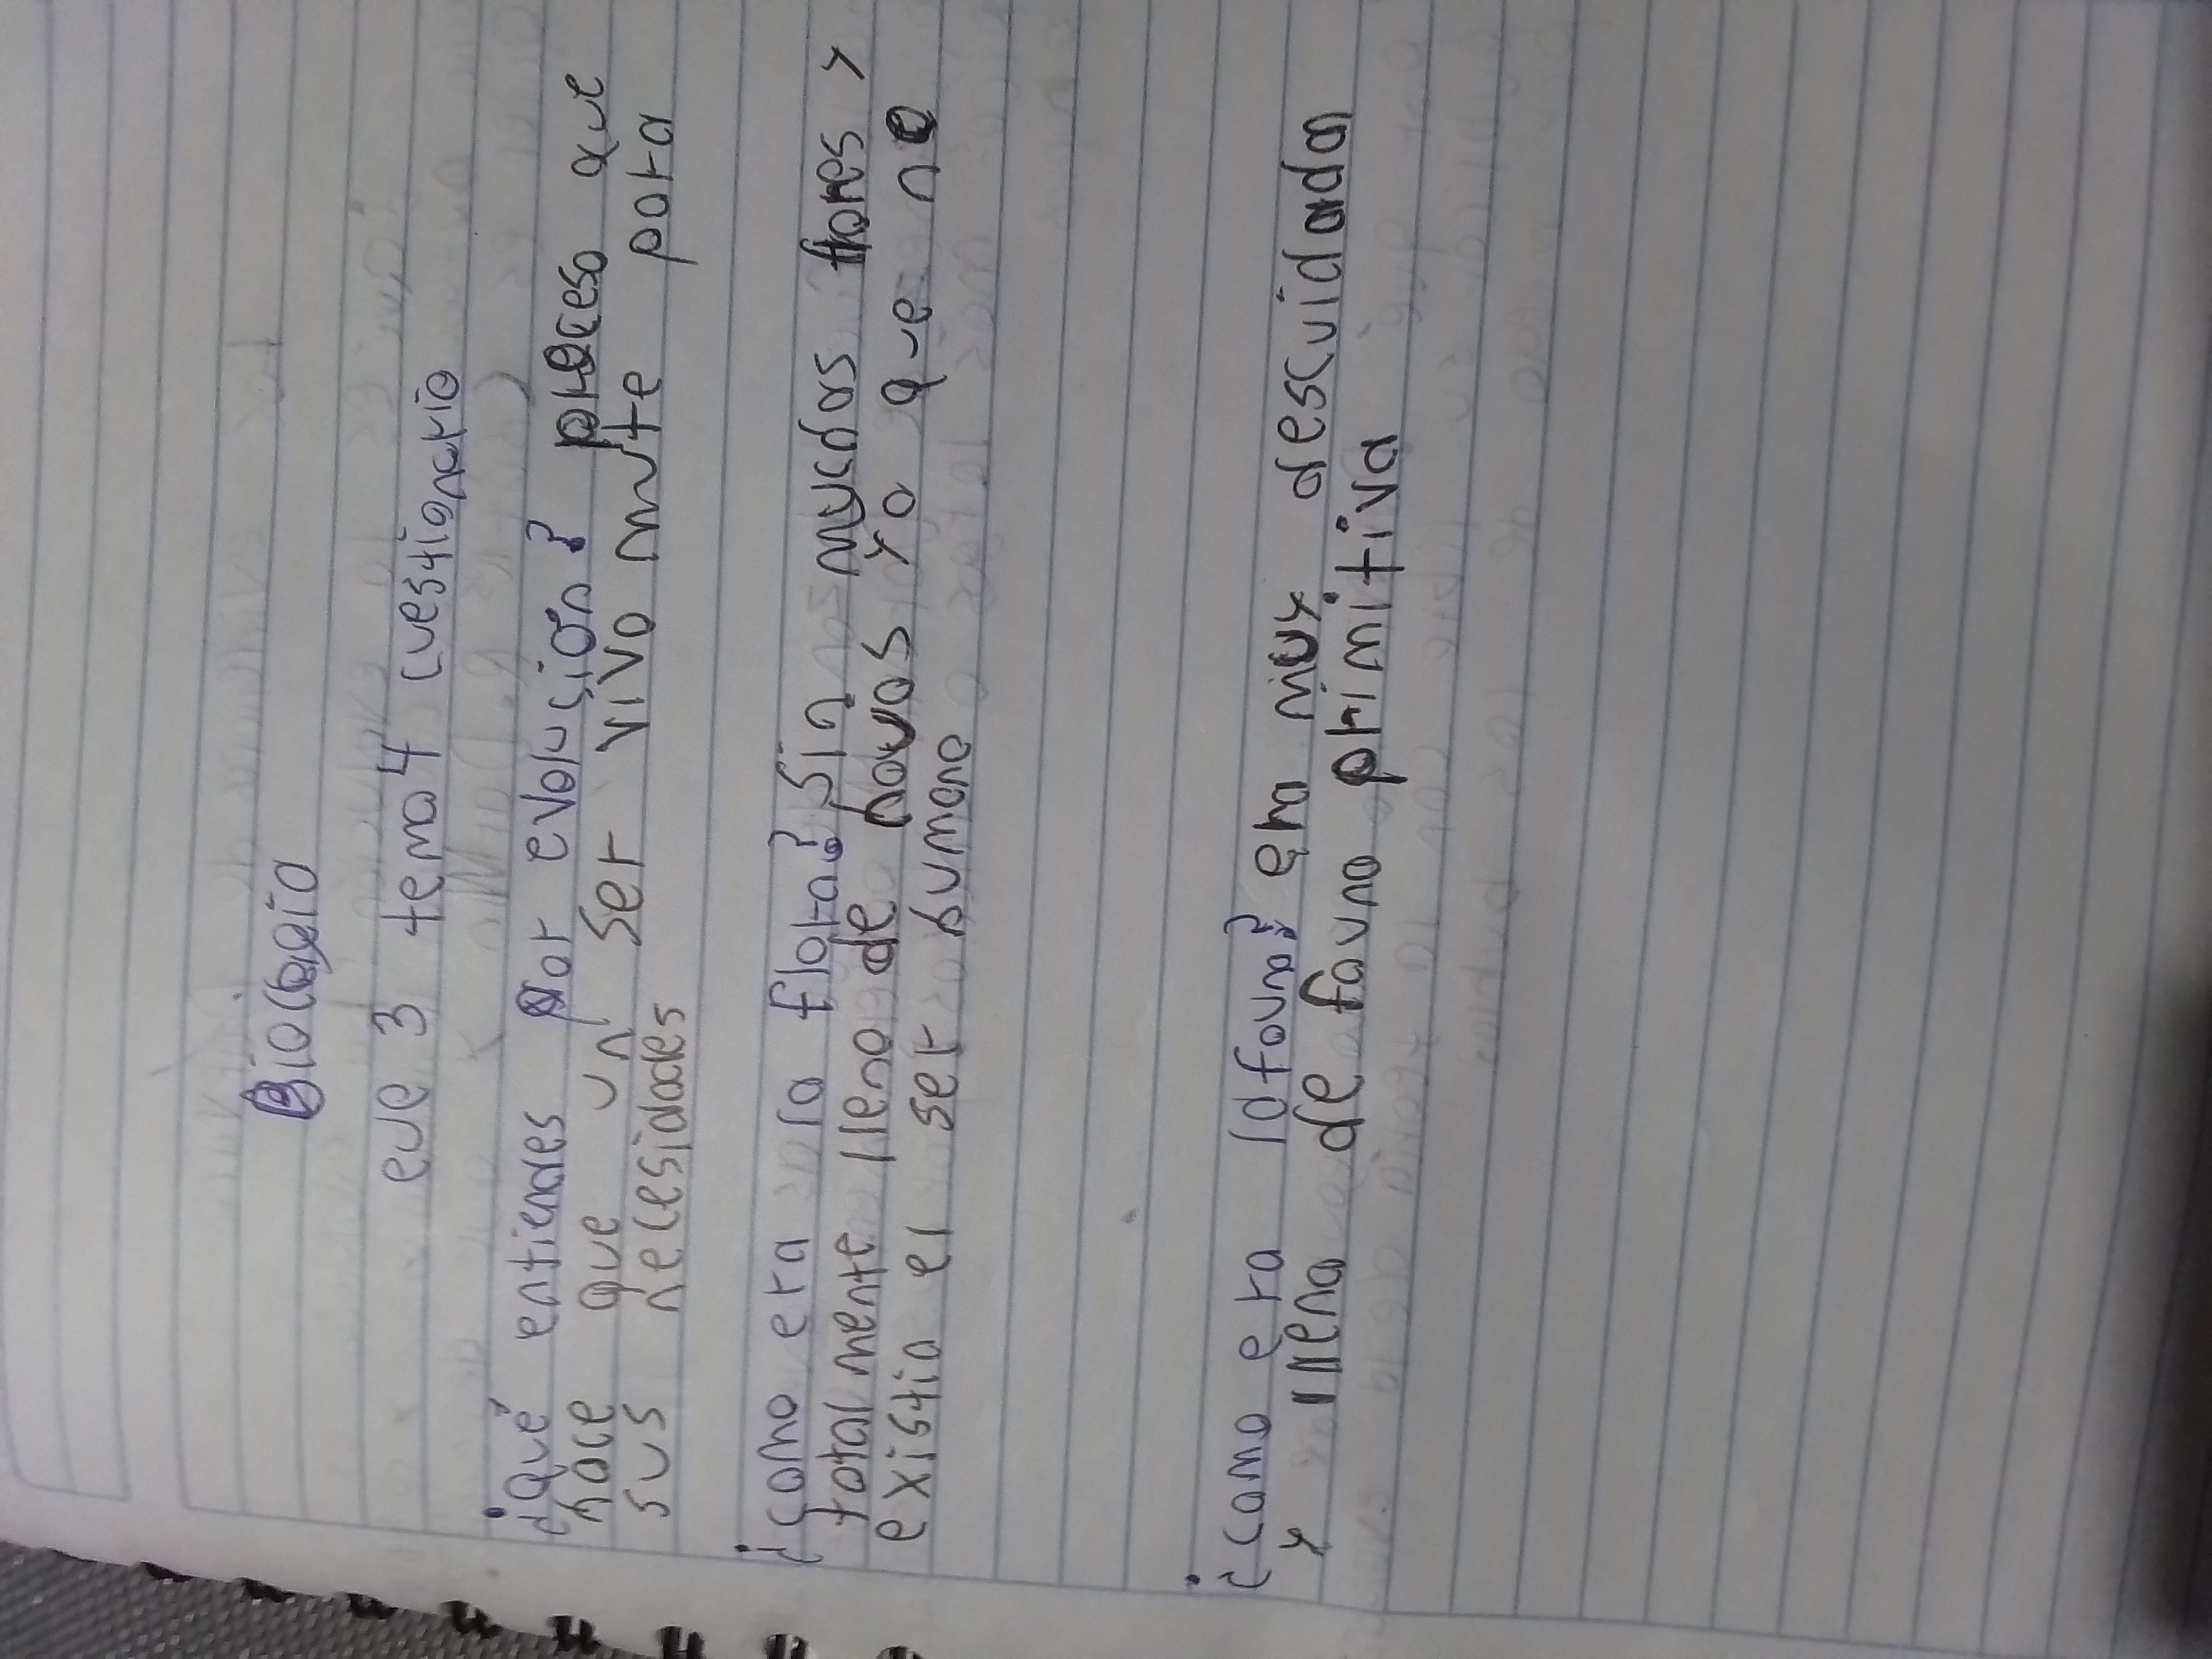 Biología
eve 3 tema 4 cuestionario
¿Qué entiendes por evolución? proceso que
hace que un ser vivo mute para
sus necesidades
¿como era la flora? Sin muchas flores y
totalmente lleno de hovas ya que no
existia el ser humano
¿como era la fauna? era muy descuidada
y llena de fauna primitiva